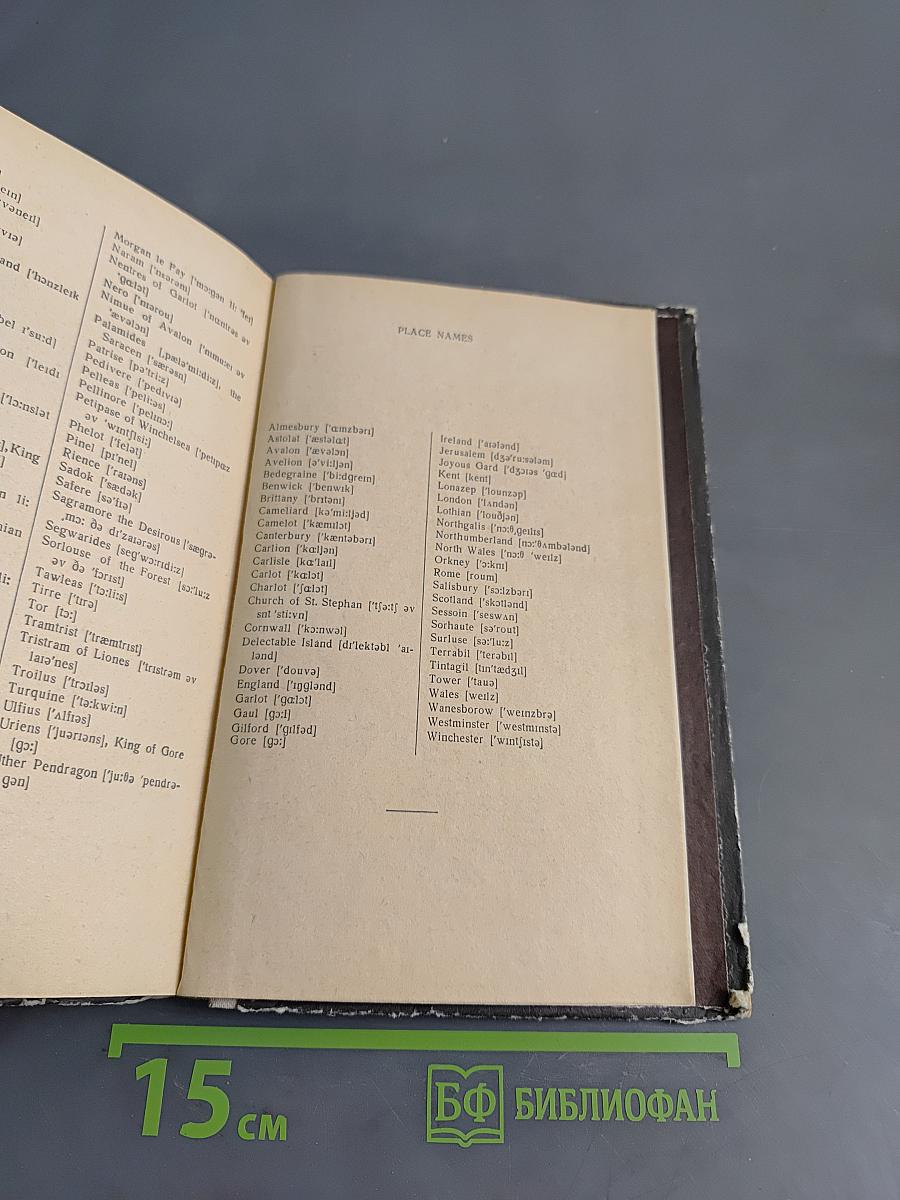 ein]
vəneıl]
vıə]
and ['hənzleık
bel ı'su:d]
on ['leıdı
['lɔ:nslət
], King
n li:
nian
li:
Morgan le Fay ['mɔrgən lı: 'feı]
Naram ['nɛərəm]
Nentres of Garlot ['nɑntrəs əv
'gɑlət]
Nero ['nıərou]
Nimue of Avalon ['nımu:eı əv
'ævələn]
Palamides [ˌpælə'mi:di:z], the
Saracen ['særəsn]
Patrise [pə'tri:z]
Pedivere ['pedıvıə]
Pelleas ['peli:əs]
Pellinore ['pelınɔ:]
Petipase of Winchelsea ['petıpɑz
əv 'wıntʃlsi:]
Phelot ['felət]
Pinel [pı'nel]
Rience ['raıəns]
Sadok ['sædək]
Safere [sə'fıə]
Sagramore the Desirous ['sægrə-
ˌmɔ: ðə dı'zaıərəs]
Segwarides [seg'wɔ:rıdi:z]
Sorlouse of the Forest [sɔ:'lu:z
əv ðə 'fɔrıst]
Tawleas ['tɔ:li:s]
Tirre ['tırə]
Tor [tɔ:]
Tramtrist ['træmtrıst]
Tristram of Liones ['trıstrəm əv
laıə'nes]
Troilus ['trɔıləs]
Turquine ['tə:kwi:n]
Ulfius ['ʌlfıəs]
Uriens ['juərıəns], King of Gore
[gɔ:]
Uther Pendragon ['ju:θə 'pendrə-
gən]
PLACE NAMES
Almesbury ['ɑmzbərı]
Astolat ['æstəlɑt]
Avalon ['ævələn]
Avelion [ə'vi:ljən]
Bedegraine ['bi:dgreın]
Benwick ['benwık]
Brittany ['brıtənı]
Cameliard [kə'mi:ljəd]
Camelot ['kæmılət]
Canterbury ['kæntəbərı]
Carlion ['kɑljən]
Carlisle [kɑ'laıl]
Carlot ['kɑlɔt]
Charlot ['ʃɑlɔt]
Church of St. Stephan ['tʃə:tʃ əv
snt 'sti:vn]
Cornwall ['kɔ:nwəl]
Delectable Island [dı'lektəbl 'aı-
lənd]
Dover ['douvə]
England ['ıŋglənd]
Garlot ['gɑlɔt]
Gaul [gɔ:l]
Gilford ['gılfəd]
Gore [gɔ:]
Ireland ['aıələnd]
Jerusalem [dʒə'ru:sələm]
Joyous Gard ['dʒɔıəs 'gɑd]
Kent [kent]
Lonazep ['lounzəp]
London ['lʌndən]
Lothian ['louðjən]
Northgalis ['nɔ:θˌgeılıs]
Northumberland [nɔ:'θʌmbələnd]
North Wales ['nɔ:θ 'weılz]
Orkney ['ɔ:knı]
Rome [roum]
Salisbury ['sɔ:lzbərı]
Scotland ['skɔtlənd]
Sessoin ['seswʌn]
Sorhaute [sə'rout]
Surluse [sə:'lu:z]
Terrabil ['terəbıl]
Tintagil [tın'tædʒıl]
Tower ['tauə]
Wales [weılz]
Wanesborow ['weınzbrə]
Westminster ['westmınstə]
Winchester ['wıntʃıstə]
15 см
БФ БИБЛИОФАН